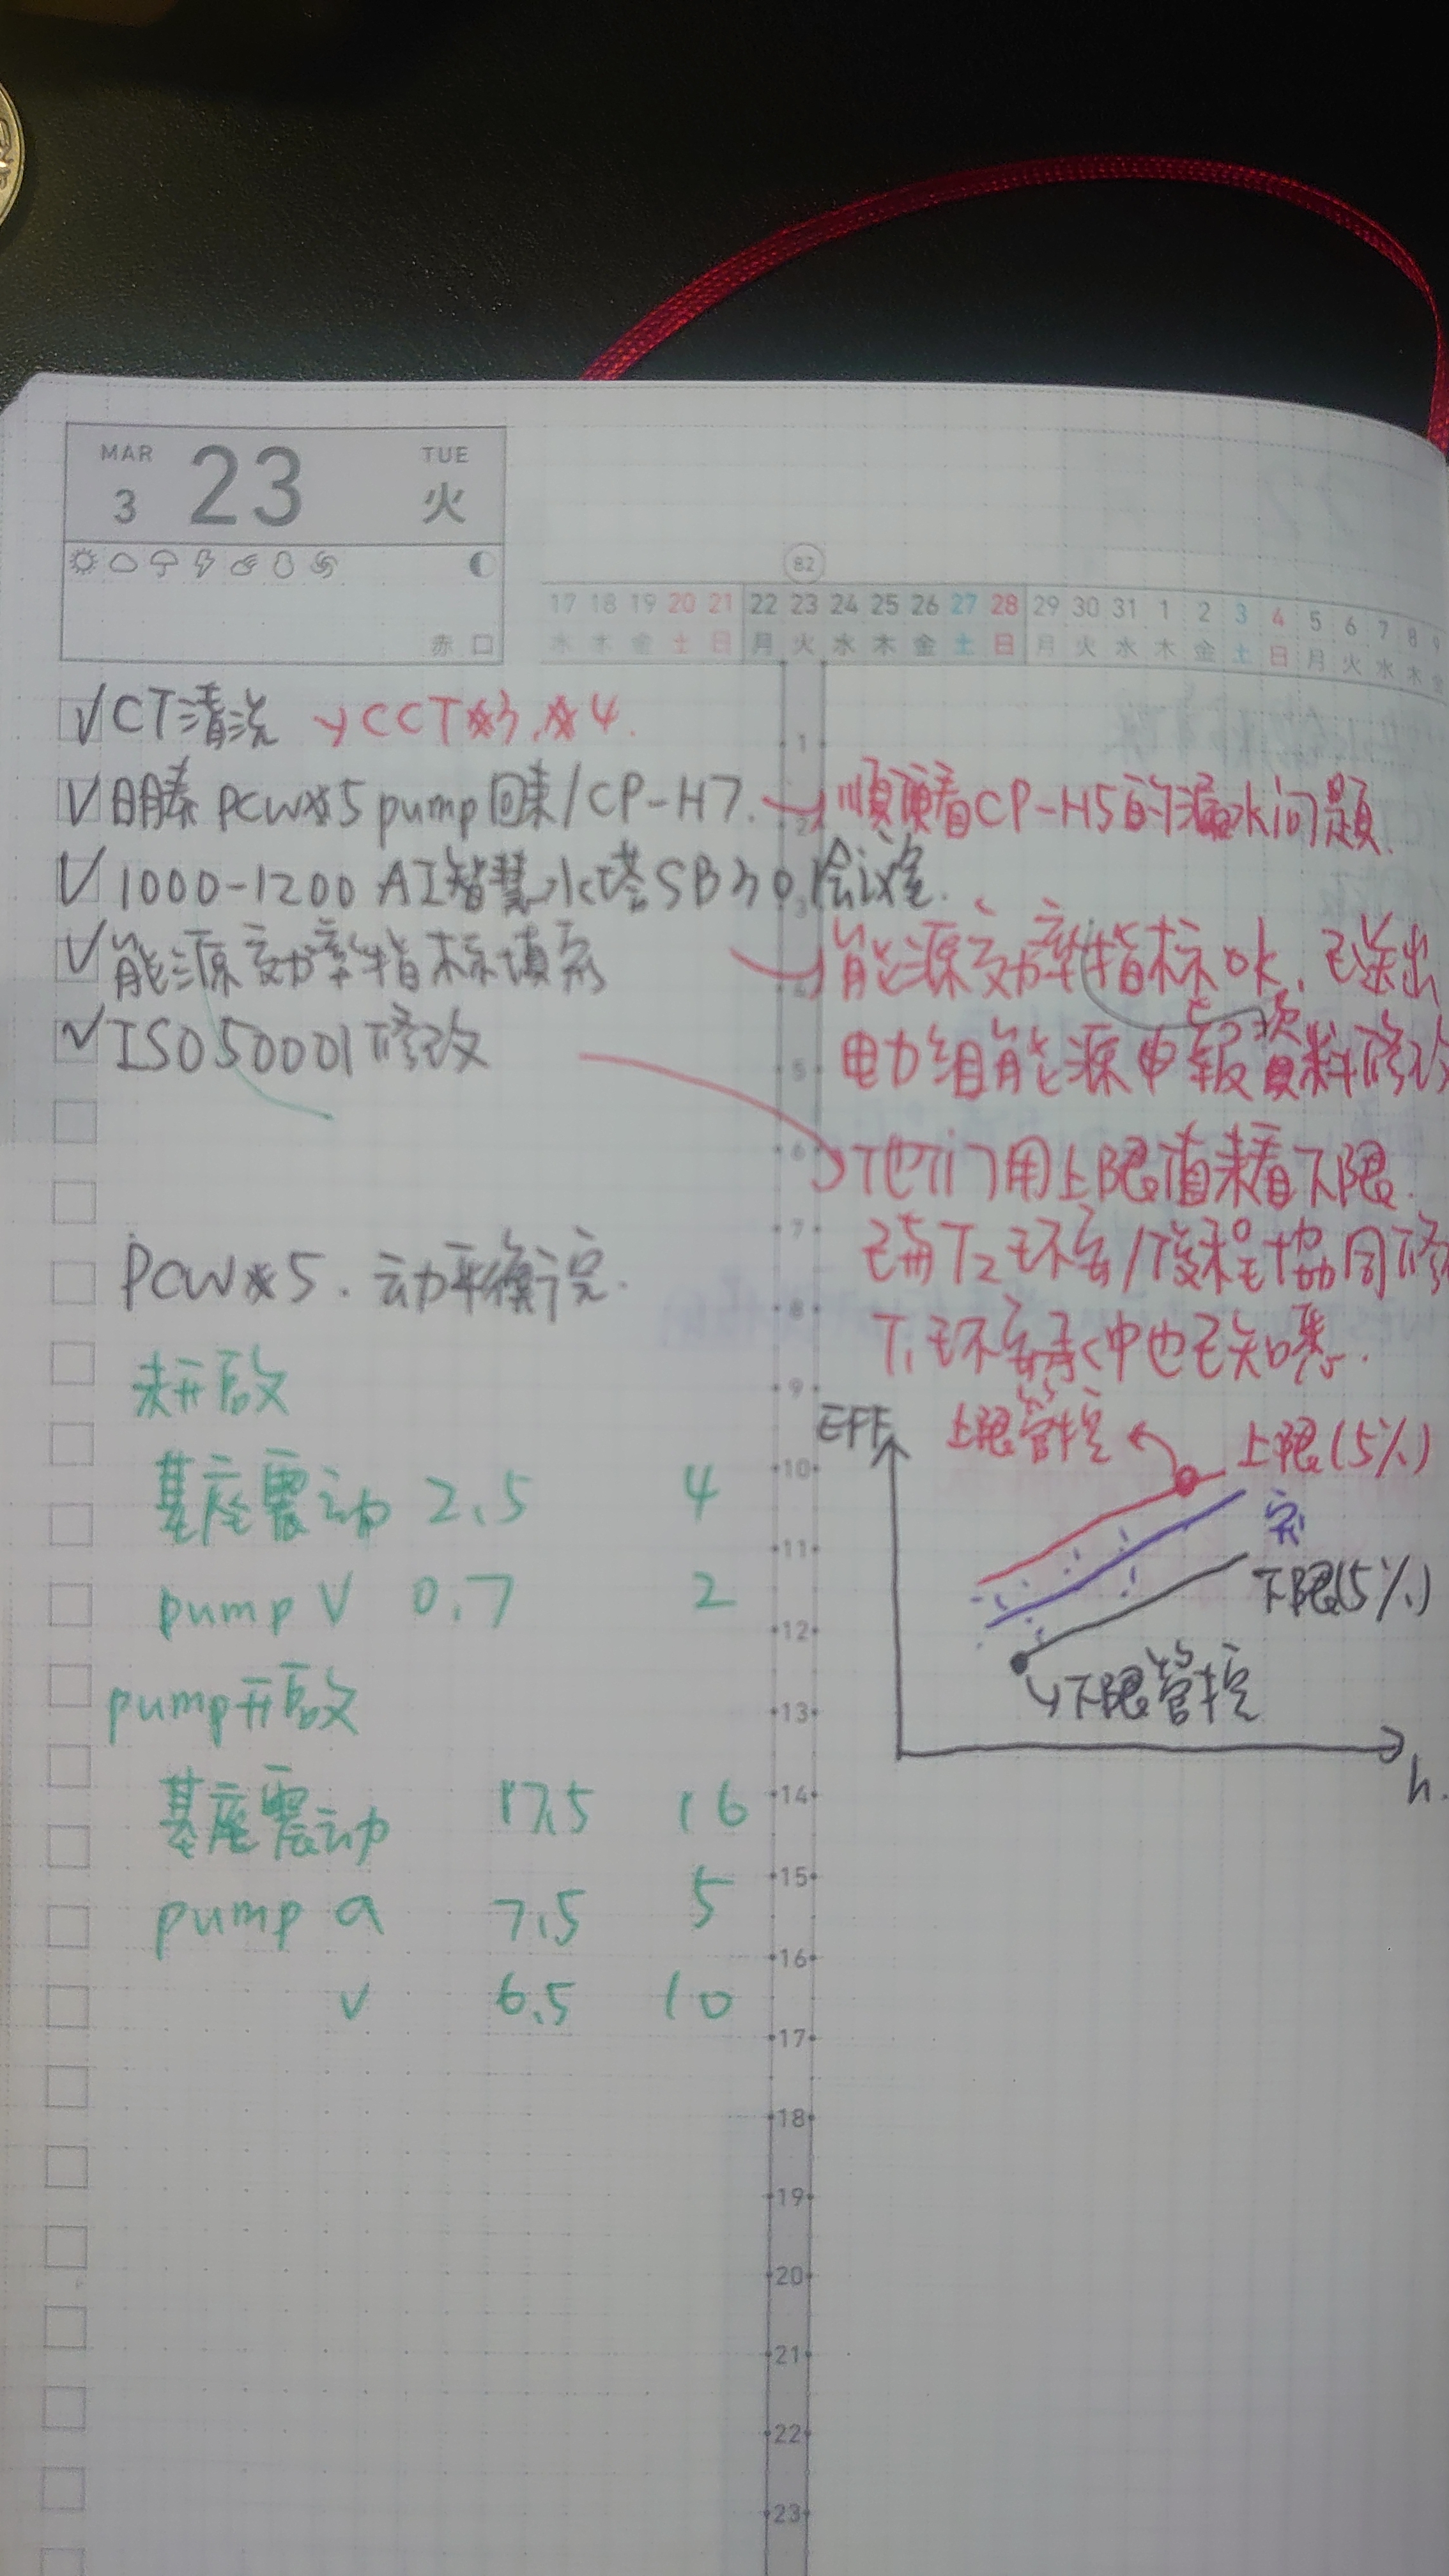 MAR
3
23
TUE
火
赤口
82
17 18 19 20 21 22 23 24 25 26 27 28 29 30 31 1 2 3 4 5 6 7 8 9
水 木 金 土 日 月 火 水 木 金 土 日 月 火 水 木 金 土 日 月 火 水 木 金
CT清洗 CCT#3.#4.
PCW#5 pump回来/CP-H7.
順便看CP-H5的漏水问题.
1000-1200 AI智慧水塔SB30会议室.
能源効率指标填寫
能源効率指标ok.已送出
ISO50001修改
电力组能源申報資料修改
他们用上限值来看下限.
PCW#5.动平衡
T2
協同修
T1 中也已知悉.
未开啟
基座震动 2.5 4
pump V 0.7 2
pump开啟
基座震动 17.5 16
pump a 7.5 5
v 6.5 10
EFF
上限管控
上限(5%)
下限(5%)
下限管控
h.
1
2
3
4
5
6
7
8
9
10
11
12
13
14
15
16
17
18
19
20
21
22
23